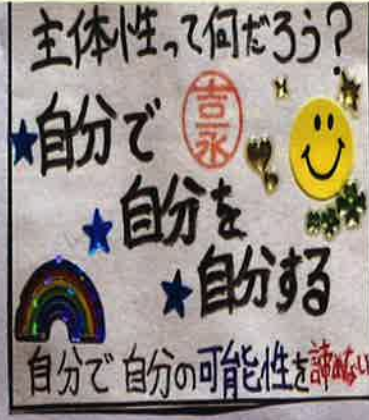 主体性って何だろう?
自分で
吉永
自分を
自分する
自分で自分の可能性を諦めない